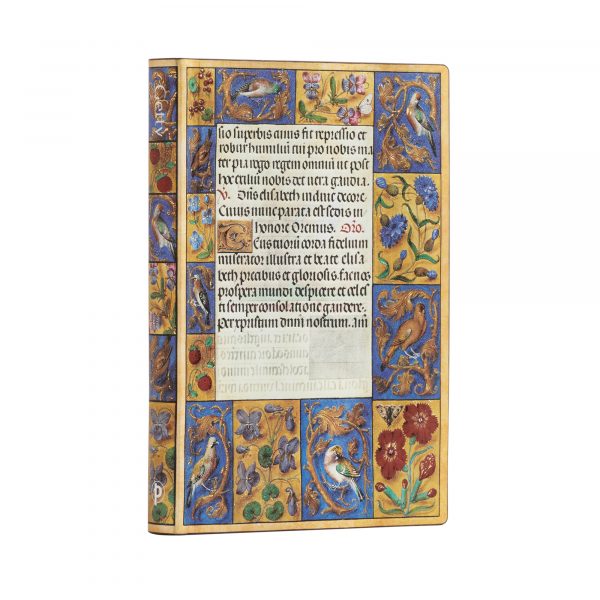 Getty
sio superbis cuius fit repressio et
robur humiliū tui pro nobis ma
ter pia rogo regem omniū ut post
hoc exiliū nobis det vera gaudia.
V. Dn̄s elisabeth induit decore
Cuius nunc parata est sedis in
honore Oremus. Oro.
Tuorū corda fidelium
miserator illustra et beate elisa
beth precibus et gloriosis. fac nos
prospera mundi despicere et celes
ti semper consolatione gaudere.
Per xpristum dnm̄ nostrum. am̄
p